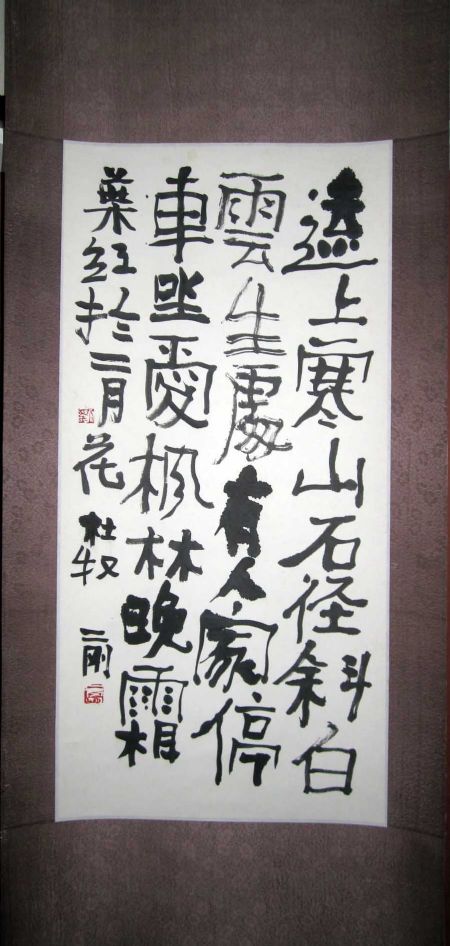 遠上寒山石径斜白
雲生處有人家停
車坐愛枫林晚霜
葉红於二月花 杜牧 二刚